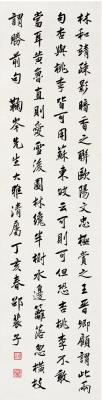 林和靖疎影暗香之聯歐陽文忠極賞之王晉卿顧謂此兩
句杏與桃李皆可用蘇東坡云可則可但恐杏桃李不敢
當耳黃魯直則愛雪後園林纔半樹水邊籬落忽橫枝
謂勝前句 鞠岑先生大雅清屬 丁亥春邵裴子